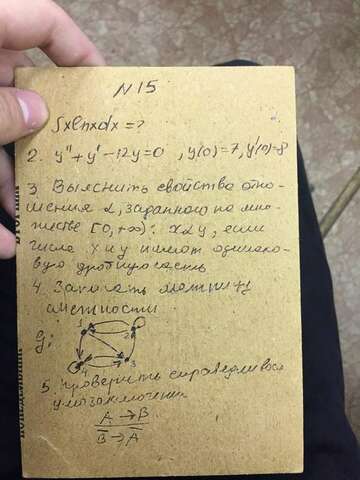 N 15
∫xlnxdx=?
2. y''+y'-12y=0 , y(0)=7, y'(0)=8
3 Выяснить свойства отно-
шения α, заданного на мно-
жестве [0,+∞): xαy, если
числа x и y имеют одинако-
вую дробную часть
4. Записать матрицу
смежности
G:
1
2
4
3
5. Проверить справедливость
умозаключения
A → B
B̅ → A̅